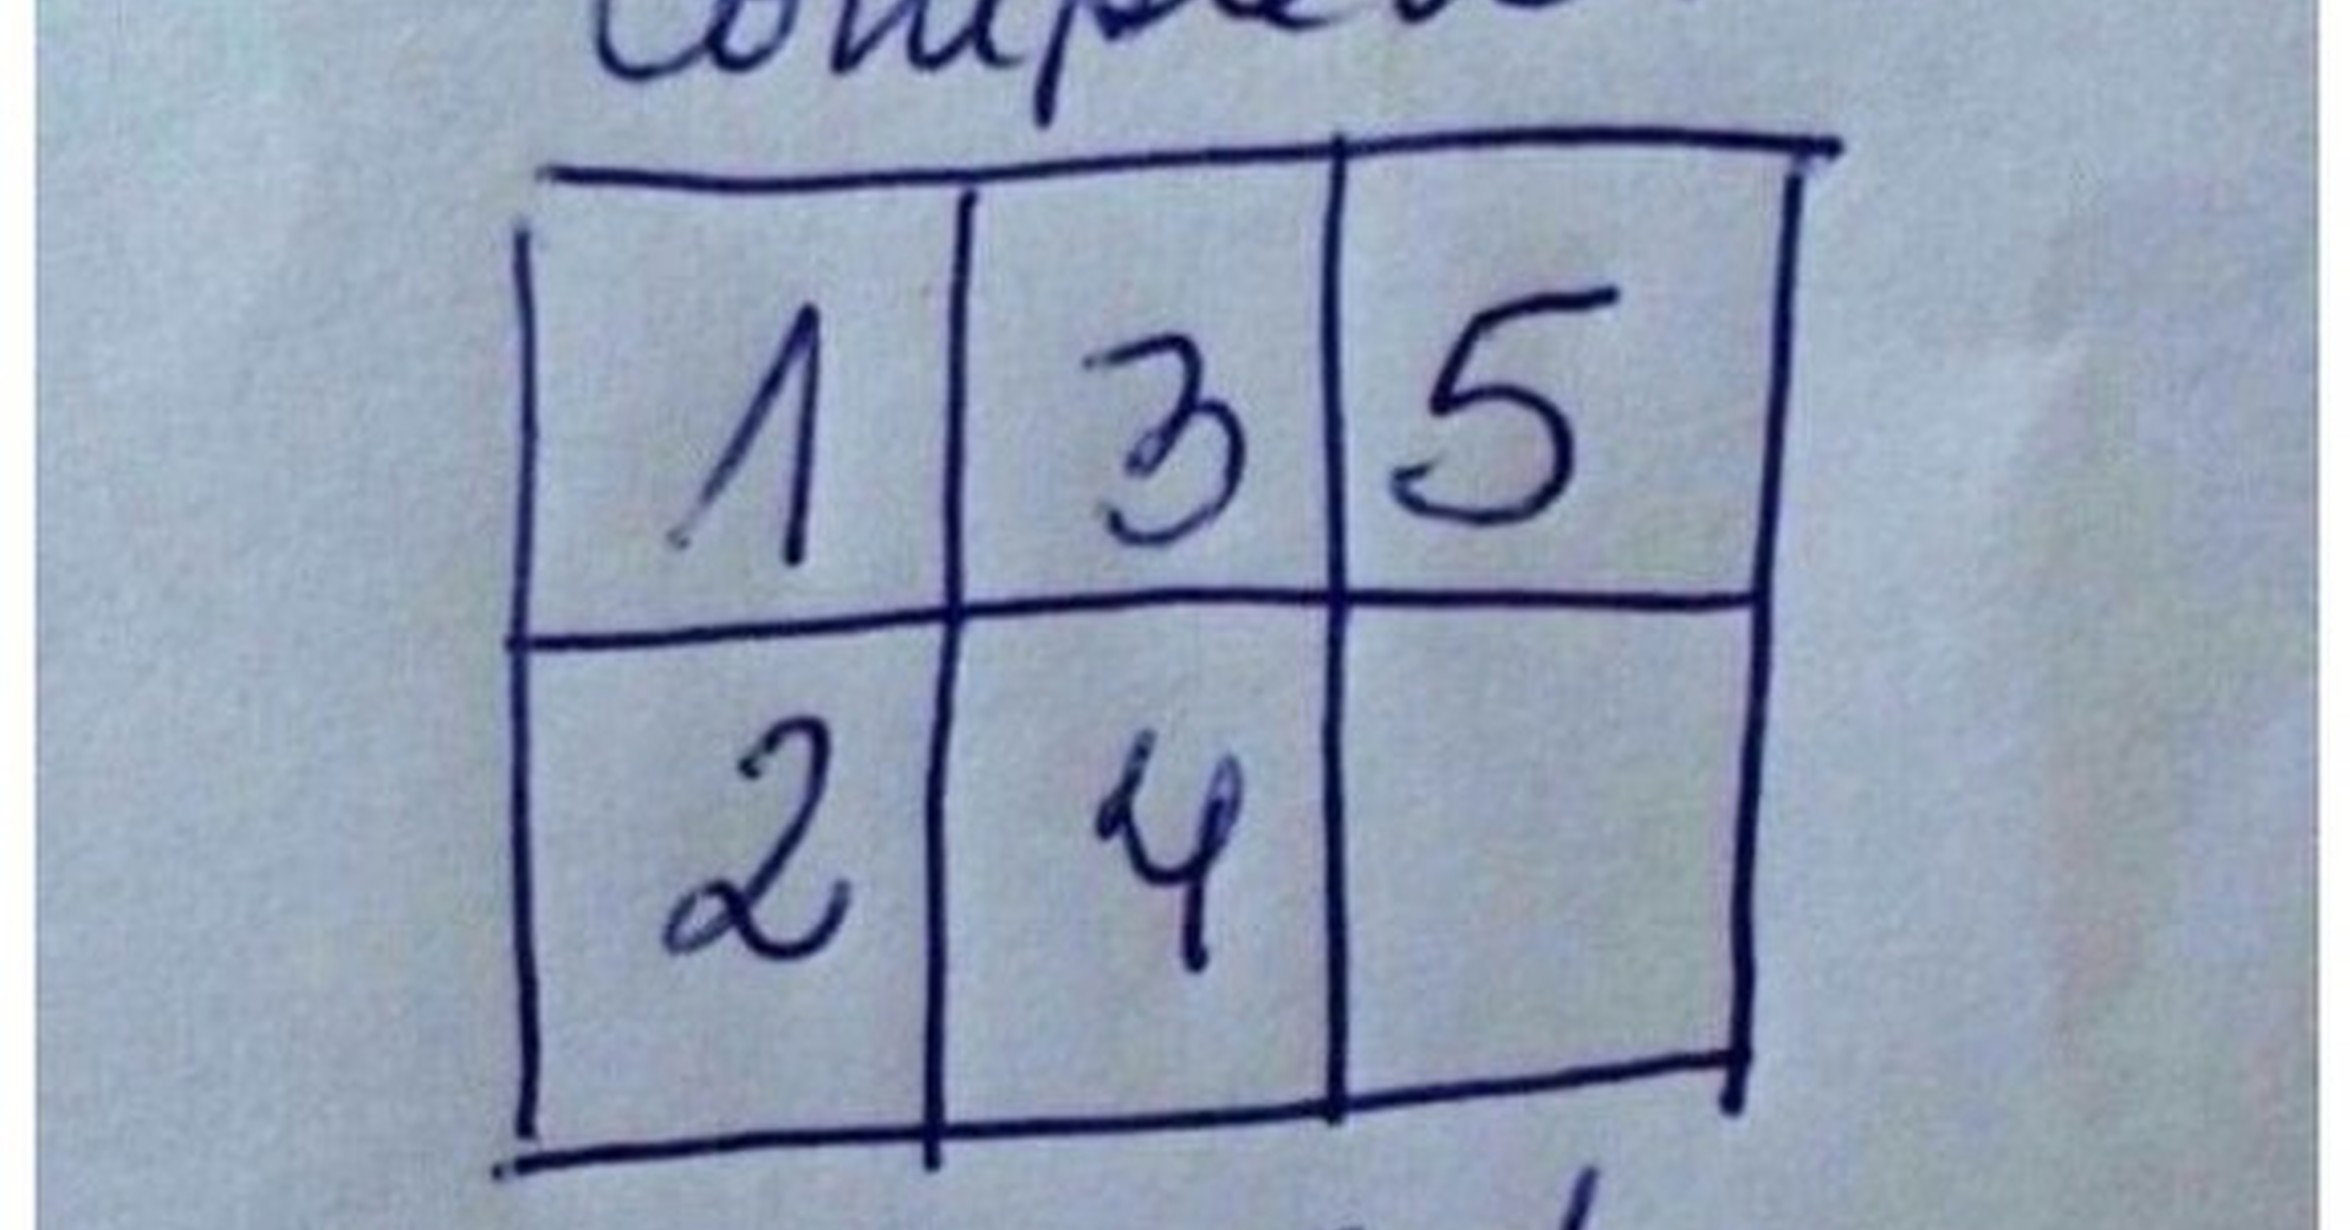 1 3 5
2 4